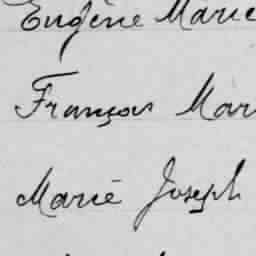 Eugène Marie
François Mar
Marie Joseph